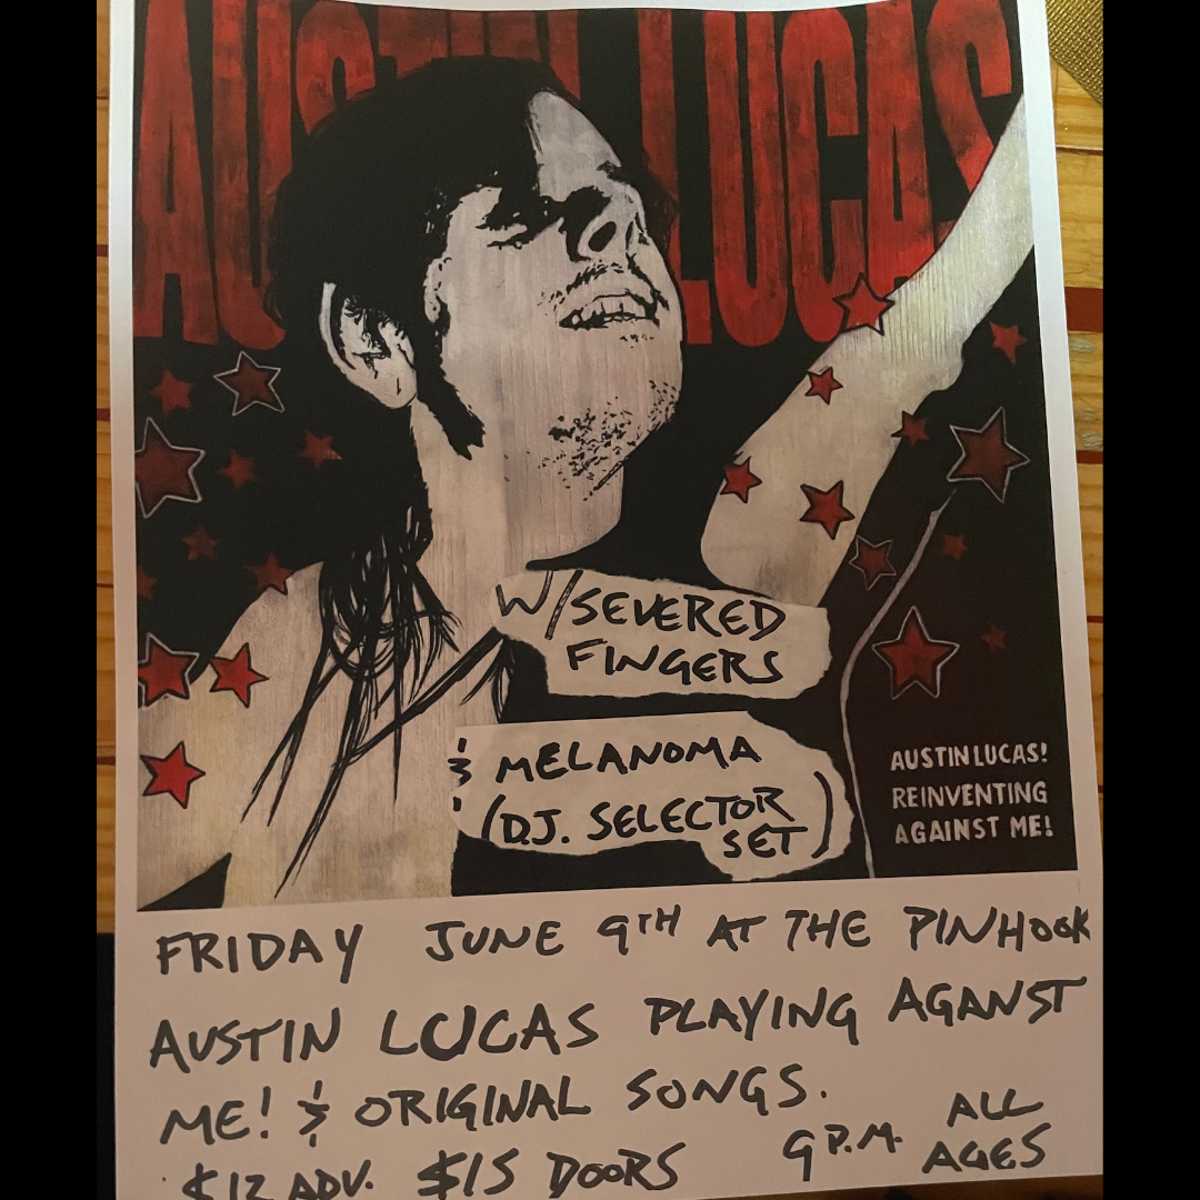 AUSTIN LUCAS
W/SEVERED
FINGERS
& MELANOMA
(D.J. SELECTOR
SET)
AUSTIN LUCAS!
REINVENTING
AGAINST ME!
FRIDAY JUNE 9TH AT THE PINHOOK
AUSTIN LUCAS PLAYING AGANST
ME! & ORIGINAL SONGS.
$12 ADV. $15 DOORS 9 P.M. ALL
AGES